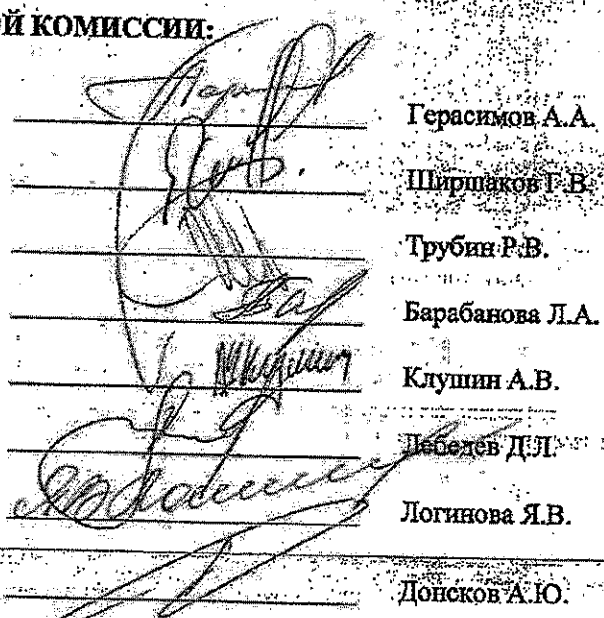 ОЙ КОМИССИИ:
Герасимов А.А.
Ширшаков Г.В.
Трубин Р.В.
Барабанова Л.А.
Клушин А.В.
Лебедев Д.Л.
Логинова Я.В.
Донсков А.Ю.